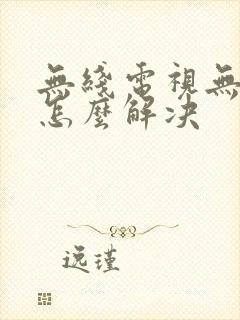 無綫電視無
怎麼解决
逸瑾